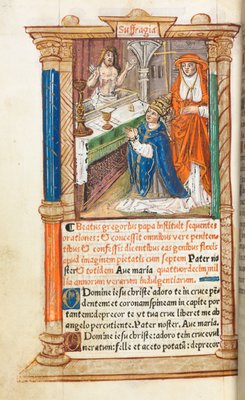 Suffragia
Beatus gregorius papa instituit sequentes
orationes: & concessit omnibus vere peniten
tibus & confessis dicentibus eas genibus flexis
apud imaginem pietatis cum septem Pater no
ster & totidem Aue maria quattuordecim mil
lia annorum verarum indulgentiarum
Domine iesu christe adoro te in cruce pē
dentem: et coronam spineam in capite por
tantem: deprecor te vt tua crux liberet me ab
angelo percutiente. Pater noster. Aue maria.
Domine iesu christe adoro te in cruce vul
neratum: felle et aceto potatum: deprecor